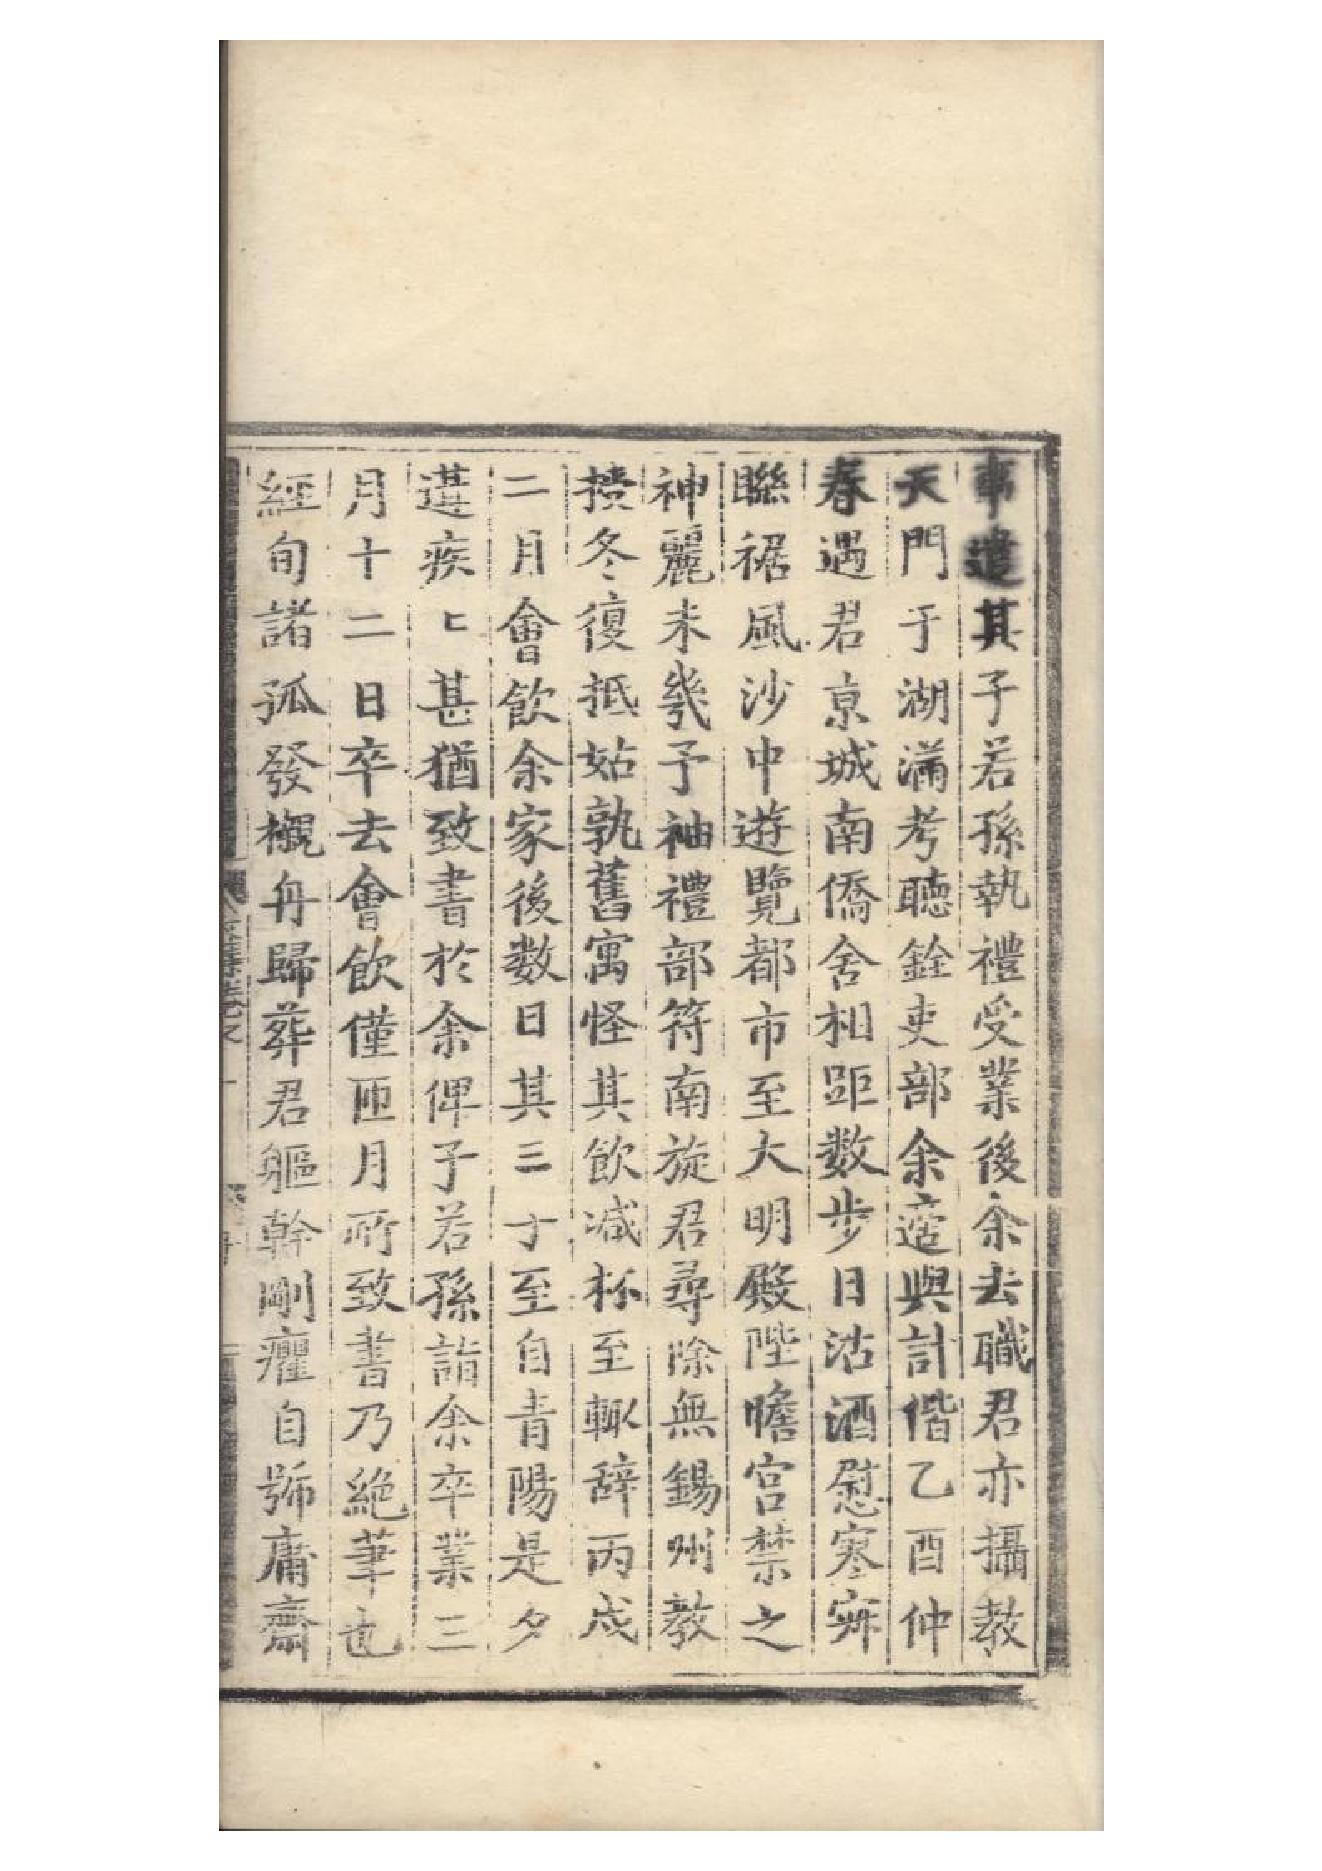 事遣其子若孫執禮受業後余去職君亦攝教
天門于湖滿考聽銓吏部余適與計偕乙酉仲
春遇君亰城南僑舍相距數步日沽酒慰寒寂
聮裾風沙中遊覽都市至大明殿陛瞻宫禁之
神麗未幾予袖禮部符南旋君尋除無錫州教
授冬復抵姑孰舊寓怪其飲减杯至輒辭丙戌
二月會飲余家後数日其三子至自青陽是夕
遘疾疾甚猶致書於余俾子若孫詣余卒業三
月十二日卒去會飲僅匝月所致書乃絶筆也
經旬諸孤發櫬舟歸葬君軀幹剛癯自號庸齋